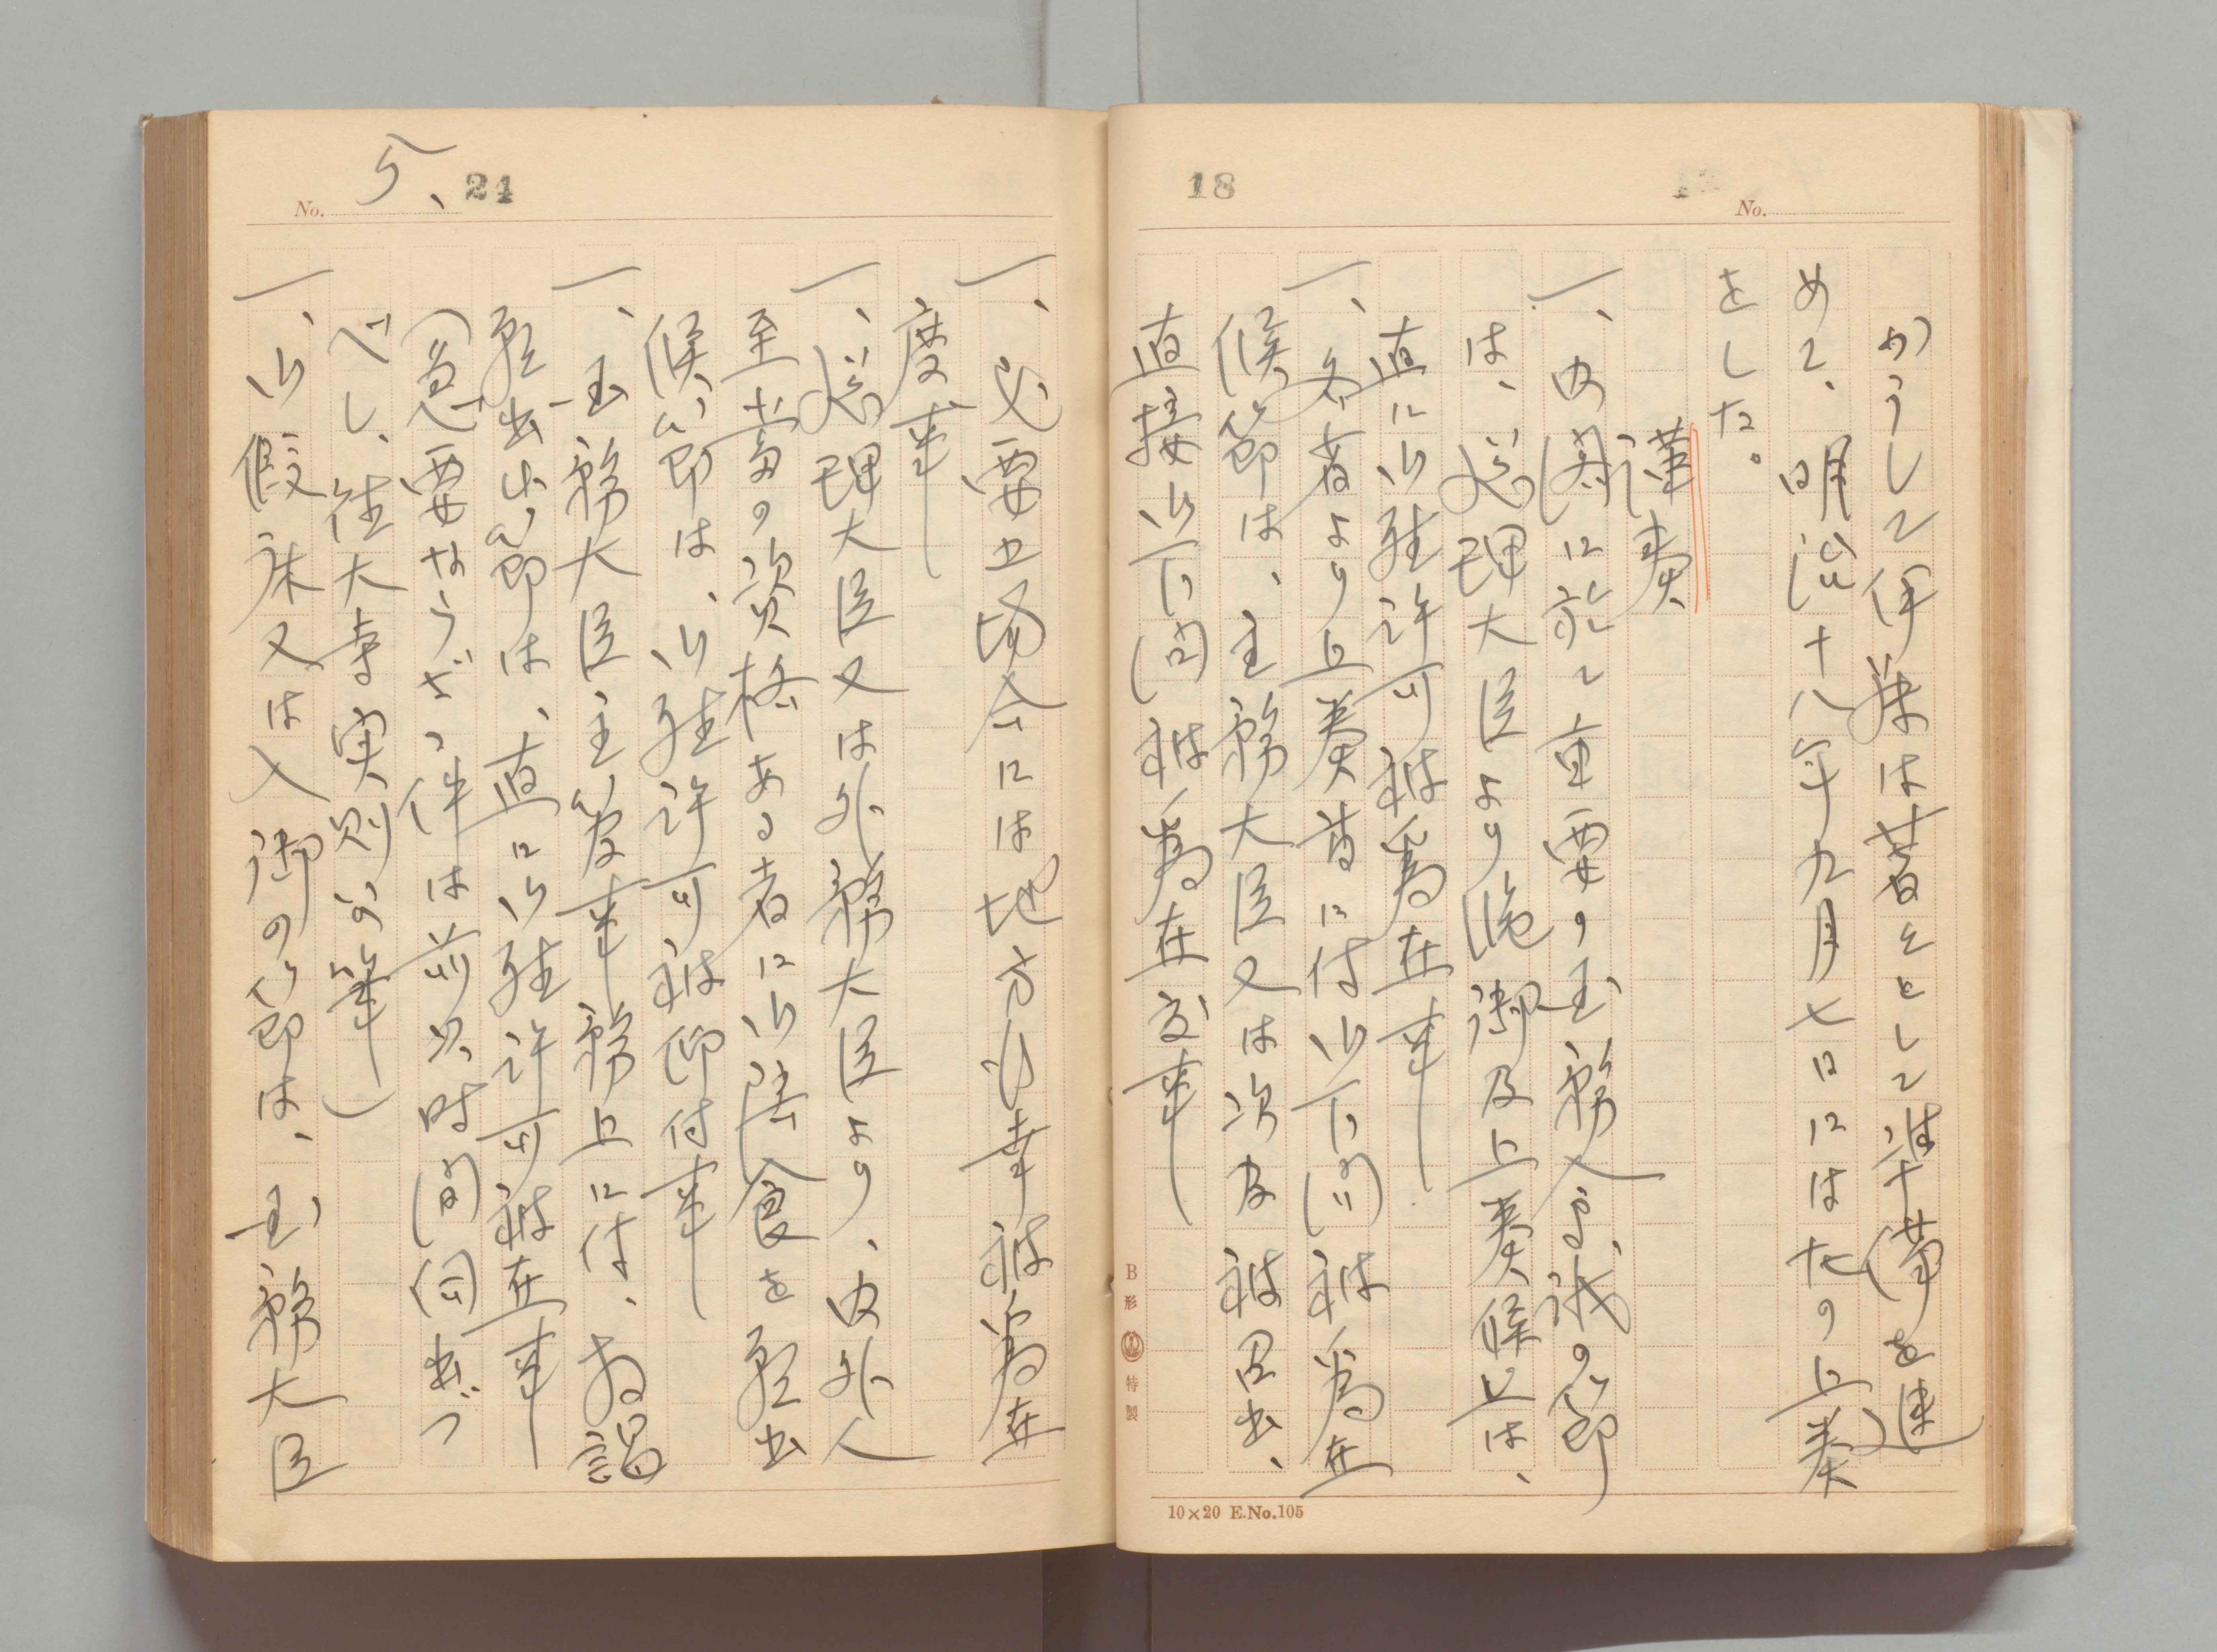 18
No.
かうして伊藤は着々として準備を進
めて、明治十八年九月七日には左の上奏
をした。
謹奏
一、内閣に於て重要の国務会議の節
は、総理大臣より臨御及上奏候上は、
直に御聴許可被為在事
一、各省より上奏書に付御下問被為在
候節は、主務大臣又は次官被召出、
直接御下問被為在度事
B形 特製
10×20 E.No.105
No. 5、 21
一、必要止場合には地方行幸被為在
度事
一、総理大臣又は外務大臣より、内外人
至当の資格ある者に御陪食を願出
候節は、御聴許可被仰付事
一、国務大臣主管事務上に付、拝謁
願出候節は、直に御聴許可被在事
(急要ならざる件は前以時間伺出づ
べし、往大事実則公筆)
一、御假床又は入御の節は、国務大臣